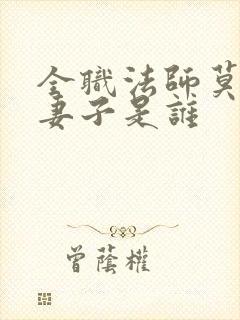 全職法師莫
妻子是誰
曾蔭權